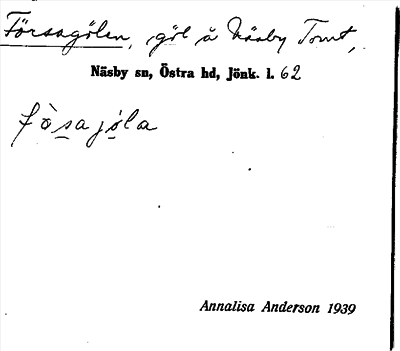 Försagölen, göl å Näsby Tomt,
Näsby sn, Östra hd, Jönk. l. 62
fò̱sajo̱la
Annalisa Anderson 1939